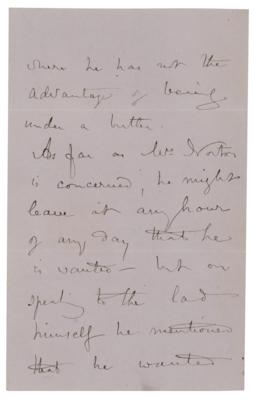 where he has not the
advantage of being
under a butler.
As far as Mrs Norton
is concerned, he might
leave at any hour
of any day that he
is wanted – but on
speaking to the lad
himself he mentioned
that he wanted